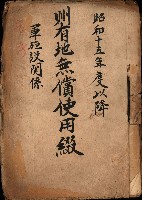 昭和十五年度以降
州有地無償使用綴
軍施設関係